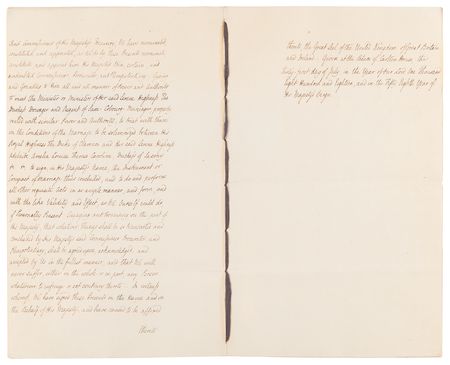 and Commissioners of His Majesty's Treasury, We have nominated
constituted and appointed, as We do by these Presents nominate
constitute and appoint them His Majesty's true, certain, and
undoubted Commissioners, Procurators, and Plenipotentiaries: Giving
and Granting to them all and all manner of Power and Authority
to meet the Minister or Ministers of Her said Serene Highness The
Duchess Dowager and Regent of Saxe-Cobourg-Meiningen, properly
vested with similar Power and Authority, to treat with them
on the Conditions of the Marriage to be solemnized between His
Royal Highness The Duke of Clarence and Her said Serene Highness
Adelaide Amelia Louisa Theresa Caroline, Duchess of Saxony
to sign, in His Majesty's Name, the Instrument or
Compact of Marriage thus concluded, and to do and perform
all other requisite Acts in as ample manner, and form, and
with the like Validity and Effect, as We Ourself could do,
if Personally Present: Engaging and Promising on the part of
His Majesty, that whatever things shall be so transacted and
concluded by His Majesty's said Commissioners Procurators, and
Plenipotentiaries, shall be agreed upon, acknowledged, and
accepted by Us in the fullest manner, and that We will
never suffer, either in the whole or in part, any Person
whatsoever to infringe or act contrary thereto. In witness
whereof, We have signed these Presents in the Name and on
the Behalf of His Majesty, and have caused to be affixed
thereto
thereto the Great Seal of the United Kingdom of Great Britain
and Ireland. Given at the Palace of Carlton House, the
thirty first day of July in the Year of Our Lord One Thousand
Eight Hundred and Eighteen, and in the Fifty Eighth Year of
His Majesty's Reign.